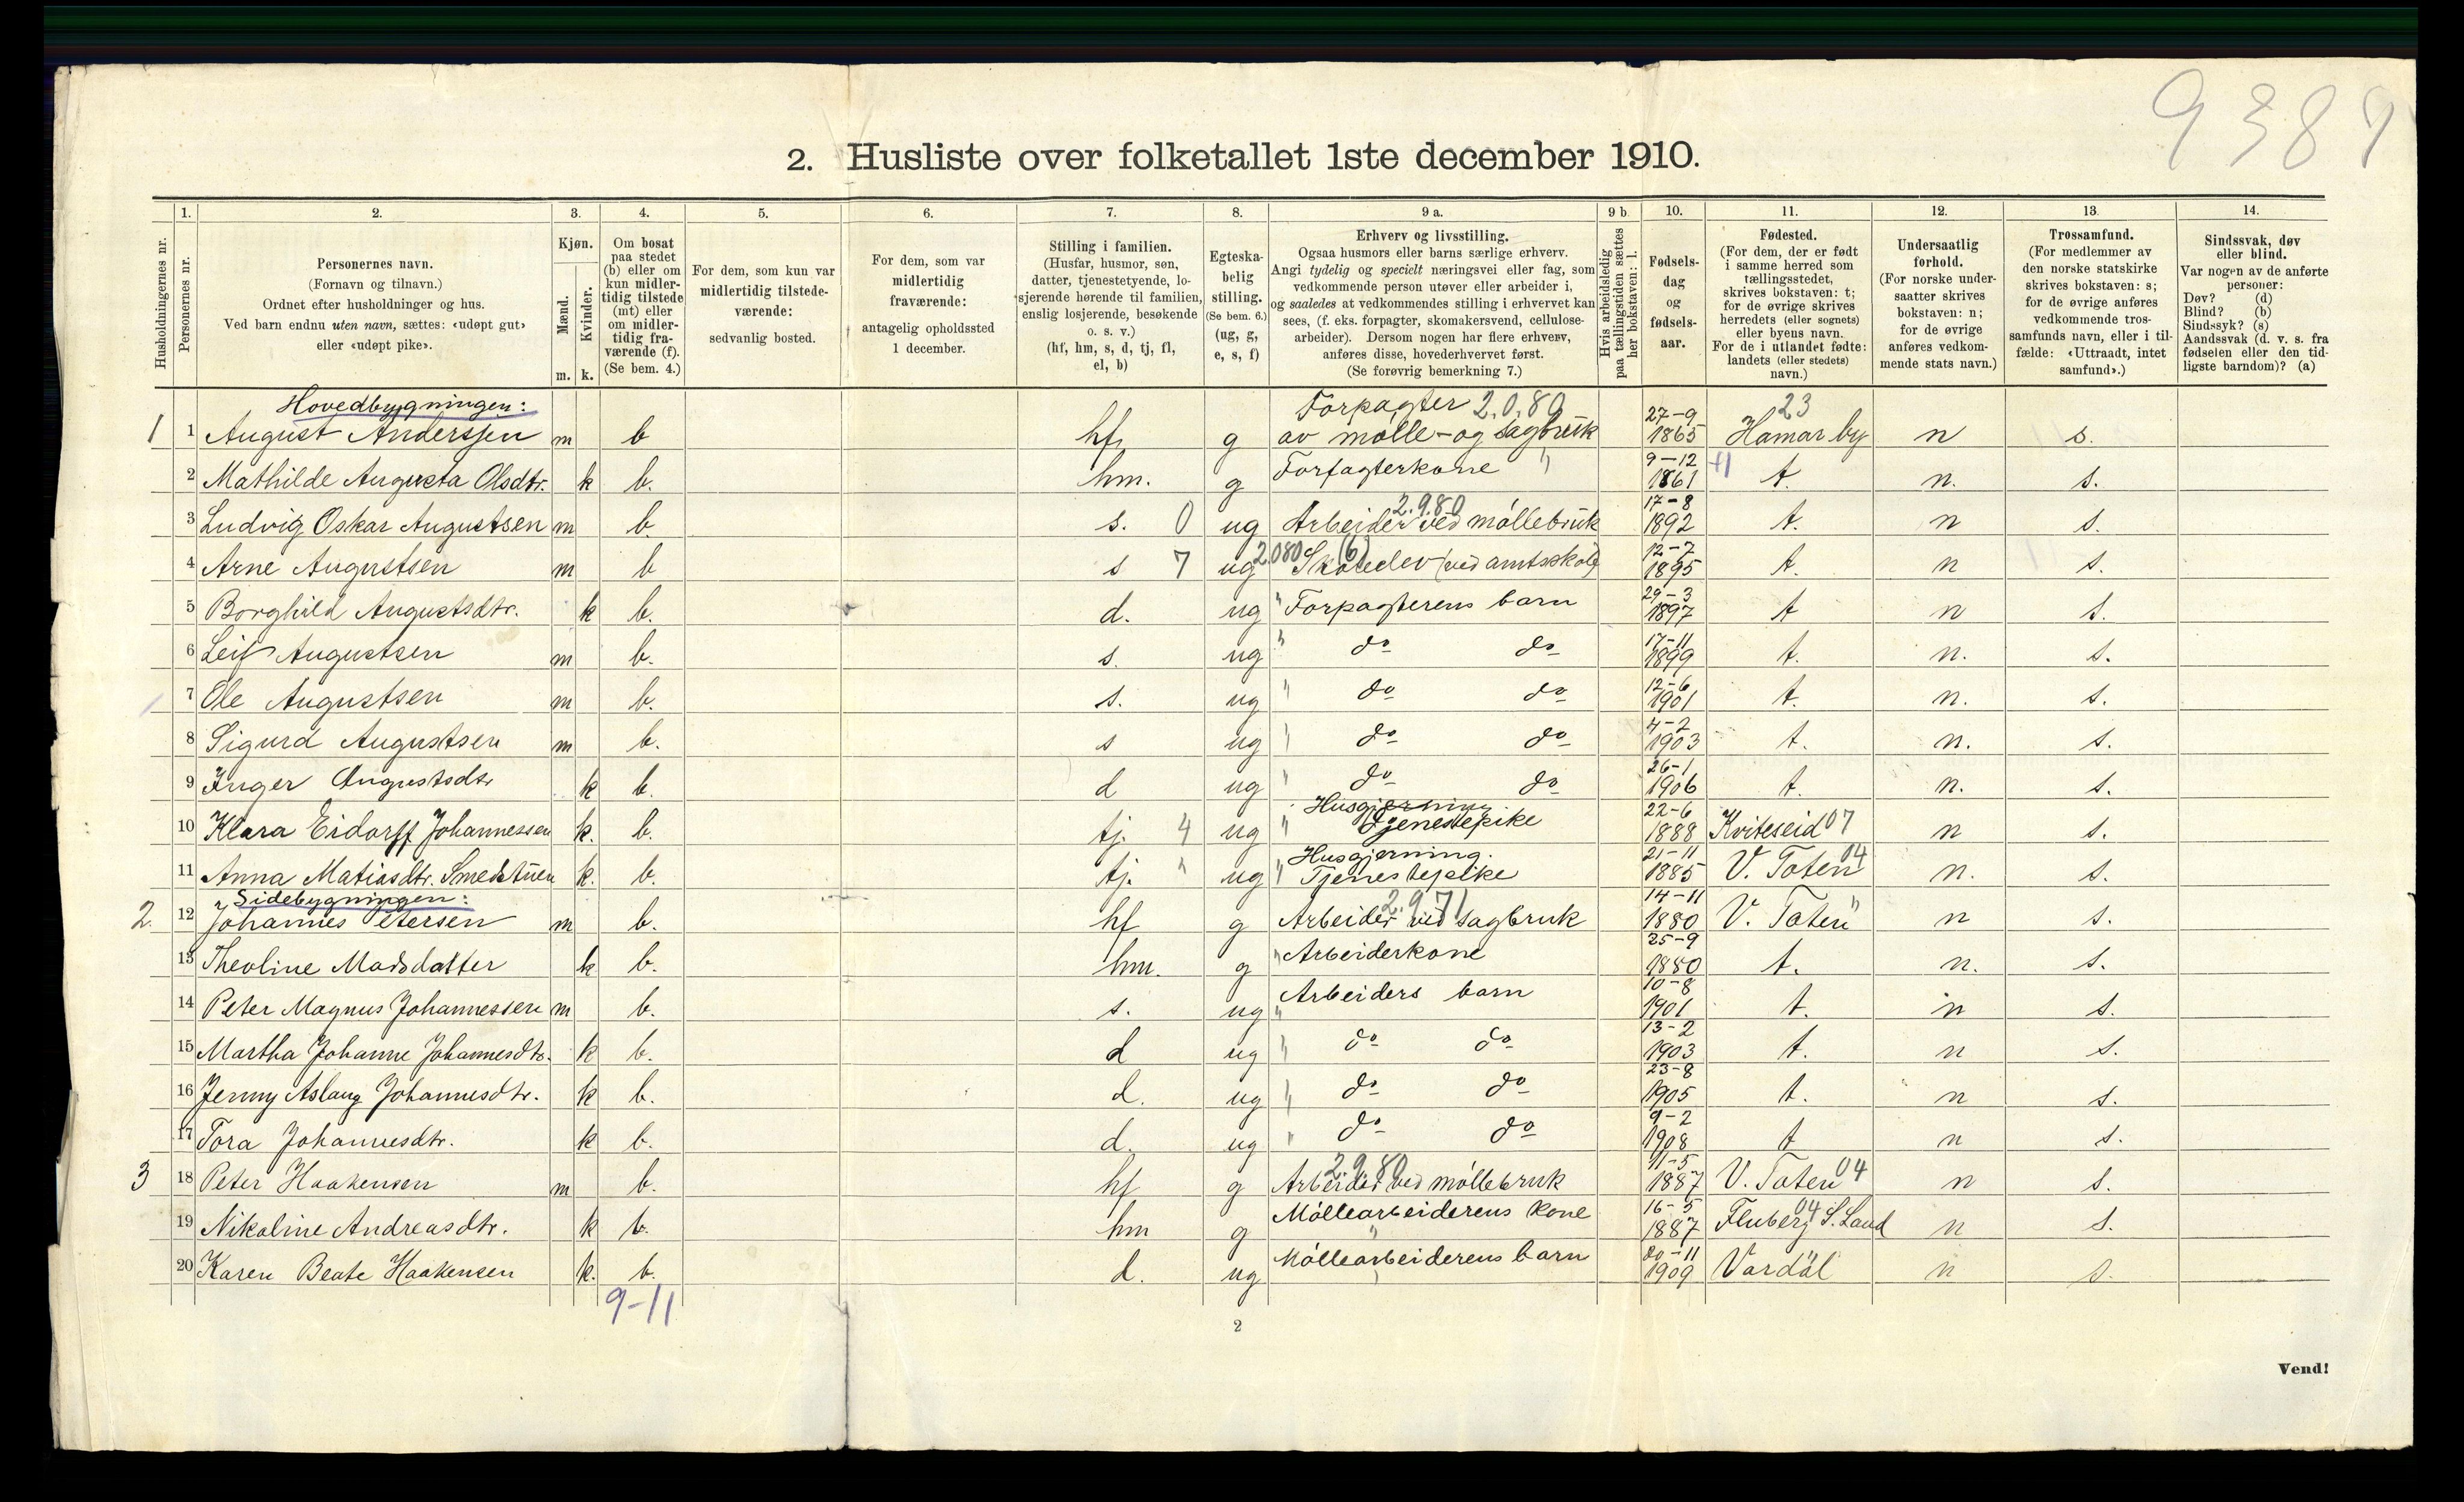 9387
2. Husliste over folketallet 1ste december 1910.
Husholdningernes nr.
1.
Personernes nr.
2.
Personernes navn.
(Fornavn og tilnavn.)
Ordnet efter husholdninger og hus.
Ved barn endnu uten navn, sættes: «udøpt gut»
eller «udøpt pike».
3.
Kjøn.
Mænd.
Kvinder.
m. k.
4.
Om bosat
paa stedet
(b) eller om
kun midler-
tidig tilstede
(mt) eller
om midler-
tidig fra-
værende (f).
(Se bem. 4.)
5.
For dem, som kun var
midlertidig tilstede-
værende:
sedvanlig bosted.
6.
For dem, som var
midlertidig
fraværende:
antagelig opholdssted
1 december.
7.
Stilling i familien.
(Husfar, husmor, søn,
datter, tjenestetyende, lo-
sjerende hørende til familien,
enslig losjerende, besøkende
o. s. v.)
(hf, hm, s, d, tj, fl,
el, b)
8.
Egteska-
belig
stilling.
(Se bem. 6.)
(ug, g,
e, s, f)
9 a.
Erhverv og livsstilling.
Ogsaa husmors eller barns særlige erhverv.
Angi tydelig og specielt næringsvei eller fag, som
vedkommende person utøver eller arbeider i,
og saaledes at vedkommendes stilling i erhvervet kan
sees, (f. eks. forpagter, skomakersvend, cellulose-
arbeider). Dersom nogen har flere erhverv,
anføres disse, hovederhvervet først.
(Se forøvrig bemerkning 7.)
9 b.
Hvis arbeidsledig
paa tællingstiden sættes
her bokstaven: l.
10.
Fødsels-
dag
og
fødsels-
aar.
11.
Fødested.
(For dem, der er født
i samme herred som
tællingsstedet,
skrives bokstaven: t;
for de øvrige skrives
herredets (eller sognets)
eller byens navn.
For de i utlandet fødte:
landets (eller stedets)
navn.)
12.
Undersaatlig
forhold.
(For norske under-
saatter skrives
bokstaven: n;
for de øvrige
anføres vedkom-
mende stats navn.)
13.
Trossamfund.
(For medlemmer av
den norske statskirke
skrives bokstaven: s;
for de øvrige anføres
vedkommende tros-
samfunds navn, eller i til-
fælde: «Uttraadt, intet
samfund».)
14.
Sindssvak, døv
eller blind.
Var nogen av de anførte
personer:
Døv? (d)
Blind? (b)
Sindssyk? (s)
Aandssvak (d. v. s. fra
fødselen eller den tid-
ligste barndom)? (a)
Hovedbygningen: Forpagter 2.0.80 27-9 23
1 1 August Anderssen m b hf. g av mølle- og sagbruk 1865 Hamar by n s.
2 Mathilde Augusta Olsdtr. k b. hm. g Forpagterkone " 9-12 1861 t. n. s.
3 Ludvig Oskar Augustsen m b. s. 0 ug Arbeider ved møllebruk 2.9.80 17-8 1892 t. n s.
4 Arne Augustsen m b s 7 ug 2.080 Skoleelev (ved amtsskole) (6) 12-7 1895 t. n s.
5 Borghild Augustsdtr. k b. d. ug " Forpagterens barn 29-3 1897 t n s.
6 Leif Augustsen m b. s. ug " do do 17-11 1899 t. n. s.
7 Ole Augustsen m b. s. ug " do do 12-6 1901 t. n. s.
8 Sigurd Augustsen m b. s ug " do do 4-2 1903 t. n. s.
9 Inger Augustsdtr k b. d ug " do do 26-1 1906 t. n. s.
10 Klara Eidorff Johannessen k. b. tj. 4 ug " Husgjerning Tjenestepike 22-6 1888 Kviteseid 07 n s.
11 Anna Matiasdtr. Smedstuen k. b. tj. " ug " Husgjerning. Tjenestepike 21-11 1885 V. Toten 04 n. s.
Sidebygningen:
2. 12 Johannes Petersen m b. hf g Arbeider ved sagbruk 2.9.71 14-11 1880 V. Toten " n s.
13 Theoline Madsdatter k b. hm. g " Arbeiderkone 25-9 1880 t. n. s.
14 Peter Magnus Johannessen m b. s. ug " Arbeiders barn 10-8 1901 t. n s.
15 Martha Johanne Johannesdtr. k b. d ug " do do 13-2 1903 t. n s.
16 Jenny Aslaug Johannesdtr. k b. d. ug " do do 23-8 1905 t. n s.
17 Tora Johannesdtr. k b. d. ug " do do 9-2 1908 t n s.
3 18 Peter Haakensen m b. hf g Arbeider ved møllebruk 2.9.80 11-5 1887 V. Toten 04 n s.
19 Nikoline Andreasdtr. k b. hm g Møllearbeiderens kone " 16-5 1887 Fluberg S. Land 04 n s.
20 Karen Beate Haakensen k. b. d. ug Møllearbeiderens barn 20-11 1909 Vardal n s.
9-11
2
Vend!